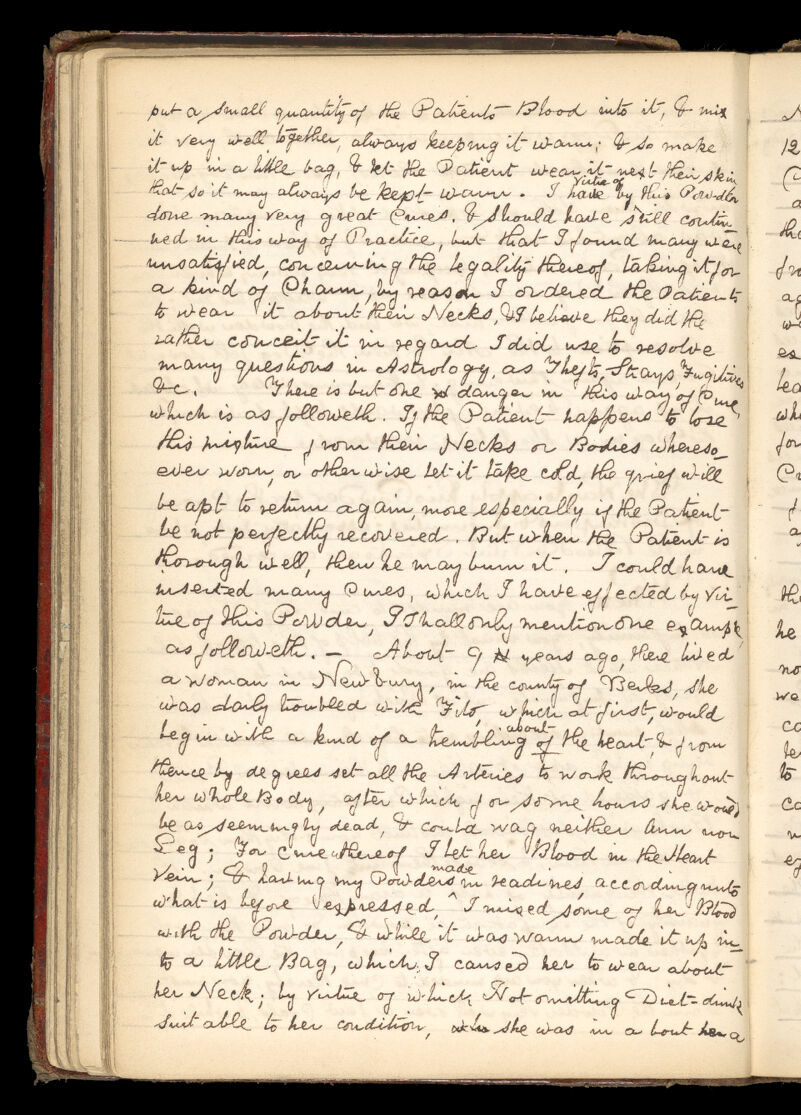 put a small quantity of the Patients Blood into it, & mix
it very well together, always keeping it warm; & so make
it up in a little bag, & let the Patient wear it next their skin
that so it may always be kept warm. I have by virtue of this Powder
done many very great Cures, & should have still contin-
ued in this way of Practice, but that I found many were
unsatisfied, concerning the legality thereof, taking it for
a kind of Charm, by reason I ordered the Patients
to wear it about their Necks, & I believe they did the
rather conceit it in regard I did use to resolve
many questions in Astrology, as Thefts, Strays, Fugitives
&c. There is but one danger in this way of Cure,
which is as followeth. If the Patient happens to lose
this mixture from their Necks or Bodies whereso-
ever worn, or otherwise let it take cold, the grief will
be apt to return again, more especially if the Patient
be not perfectly recovered. But when the Patient is
thorough well, then he may burn it. I could have
inserted many Cures, which I have effected by vir-
tue of this Powder, I shall only mention one example,
as followeth. — About 9 years ago, there lived
a woman in Newbury, in the county of Berks, she
was daily troubled with Fits, which at first, would
begin with a kind of a trembling about the heart, & from
thence by degrees set all the Arteries to work throughout
her whole Body, after which for some hours she would
be as seemingly dead, & could wag neither Arm nor
Leg; For Cure thereof I let her Blood in the Heart
Vein; & having my Powders made in readines, according unto
what is before expressed, I mixed some of her Blood
with the Powder, & while it was warm made it up in-
to a little Bag, which I caused her to wear about
her Neck; by virtue of which, Not omitting Diet-drink
suitable to her condition, she was in about a